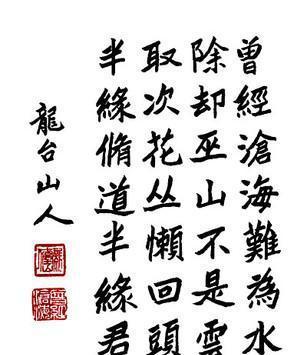 曾經滄海難為水
除却巫山不是雲
取次花丛懶回頭
半緣脩道半緣君
龍台山人